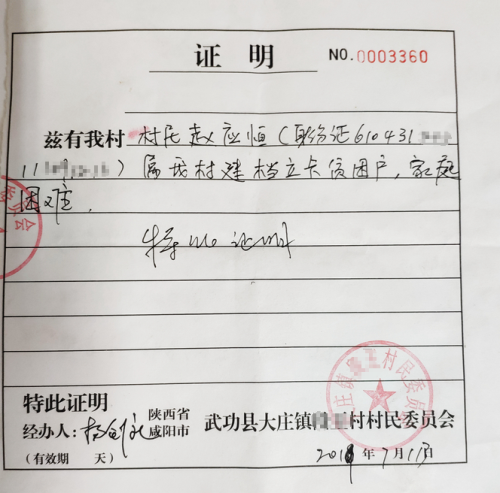 证明 NO.0003360
兹有我村村民赵应恒(身份证610431
11)属我村建档立卡贫困户,家庭
困难.
特此证明
特此证明
经办人: 陕西省咸阳市 武功县大庄镇 村村民委员会
(有效期 天) 2018年7月13日
村民委员会